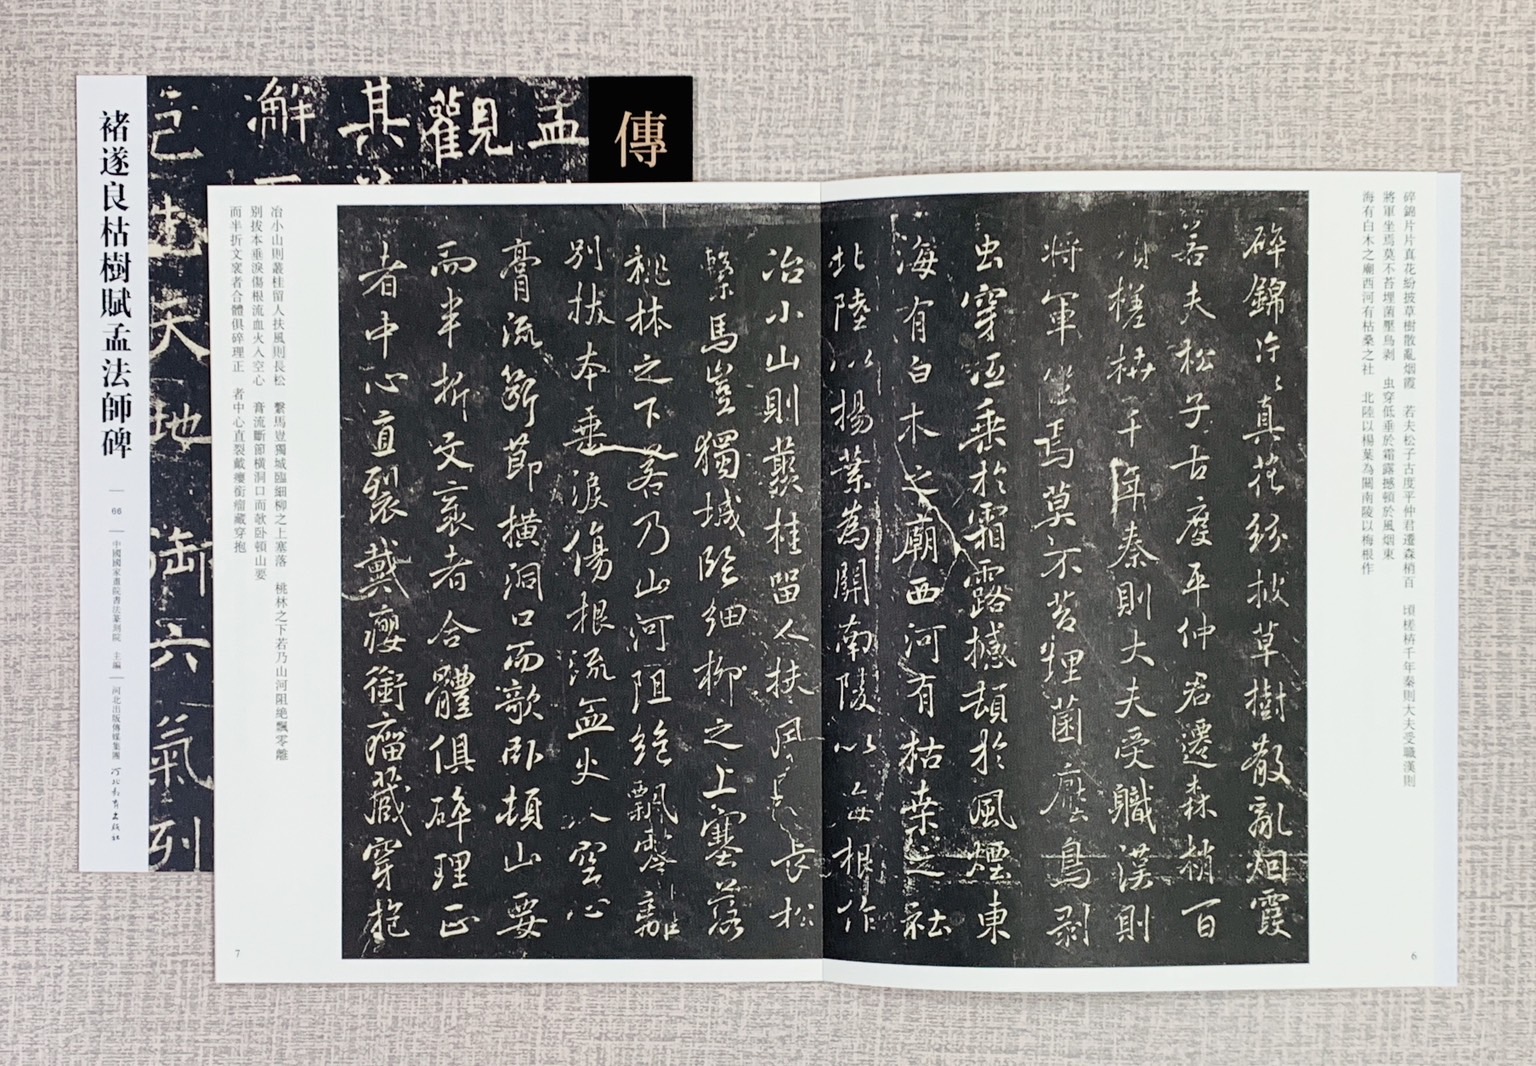 傳
孟
觀
其
澥
地
天
地
御
六
氣
列
褚遂良枯樹賦孟法師碑
66
中國國家畫院書法篆刻院 主編
河北出版傳媒集團
河北教育出版社
碎錦片片真花紛披草樹散亂烟霞 若夫松子古度平仲君遷森梢百 頃槎枿千年秦則大夫受職漢則
將軍坐焉莫不苔埋菌壓鳥剥 虫穿低垂於霜露撼頓於風烟東
海有白木之廟西河有枯桑之社 北陸以楊葉為關南陵以梅根作
碎錦片片真花紛披草樹散亂烟霞
若夫松子古度平仲君遷森梢百
頃槎枿千年秦則大夫受職漢則
将軍坐焉莫不苔埋菌壓鳥剥
虫穿低垂於霜露撼頓於風煙東
海有白木之廟西河有枯桒之社
北陸以楊葉為關南陵以梅根作
6
冶小山則叢桂留人扶風則長松
繫馬豈獨城臨細柳之上塞落
桃林之下若乃山河阻絶飄零離
別拔本垂淚傷根流血火入空心
膏流斷節橫洞口而欹卧頓山要
而半折文衺者合體俱碎理正
者中心直裂戴癭銜瘤藏穿抱
冶小山則叢桂留人扶風則長松 繫馬豈獨城臨細柳之上塞落 桃林之下若乃山河阻絶飄零離
別拔本垂淚傷根流血火入空心 膏流斷節橫洞口而欹卧頓山要
而半折文衺者合體俱碎理正 者中心直裂戴癭銜瘤藏穿抱
7